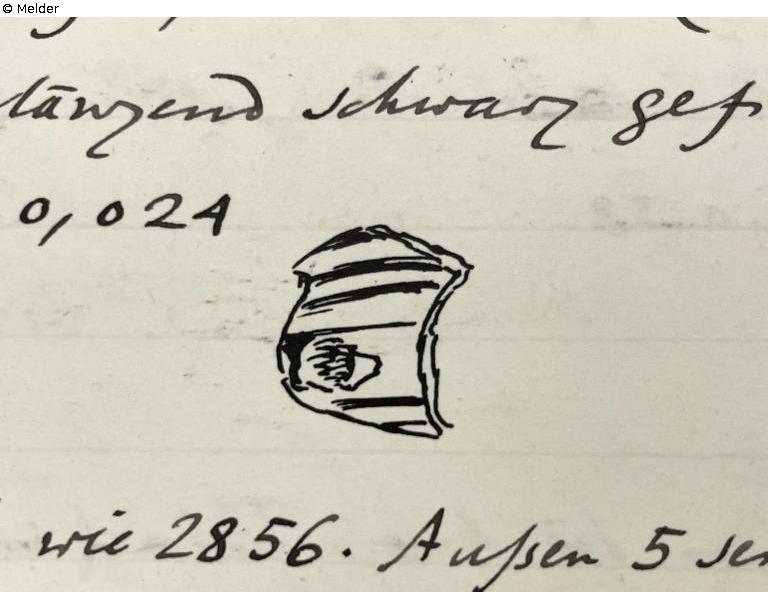 © Melder
länzend schwarz gef
0,024
wie 2856. Außen 5 sen